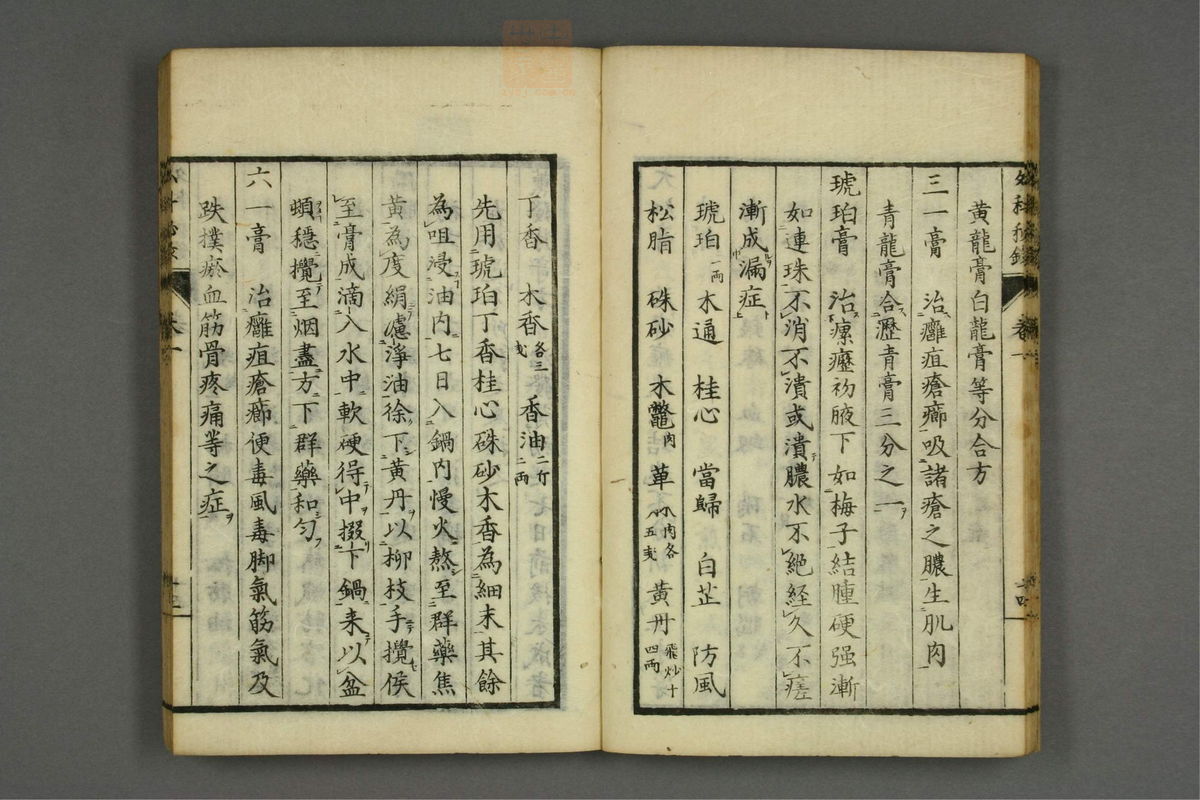 黄龍膏白龍膏等分合方
三一膏 治癰疽瘡癤吸諸瘡之膿生肌肉
青龍膏合瀝青膏三分之一
琥珀膏 治瘰癧初腋下如梅子結腫硬强漸
如連珠不消不潰或潰膿水不絶経久不瘥
漸成漏症
琥珀一両 木通 桂心 當歸 白芷 防風
松脂 硃砂 木鼈肉 萆麻肉各五戔 黄丹飛炒十四両
丁香 木香各三戔 香油二斤二両
先用琥珀丁香桂心硃砂木香為細末其餘
為咀浸油内七日入鍋内慢火熬至群藥焦
黄為度絹濾淨油徐下黄丹以柳枝手攪侯
至膏成滴入水中軟硬得中掇下鍋来以盆
頻穏攪至烟盡方下群藥和匀
六一膏 治癰疽瘡癤便毒風毒脚氣筋氣及
跌撲瘀血筋骨疼痛等之症